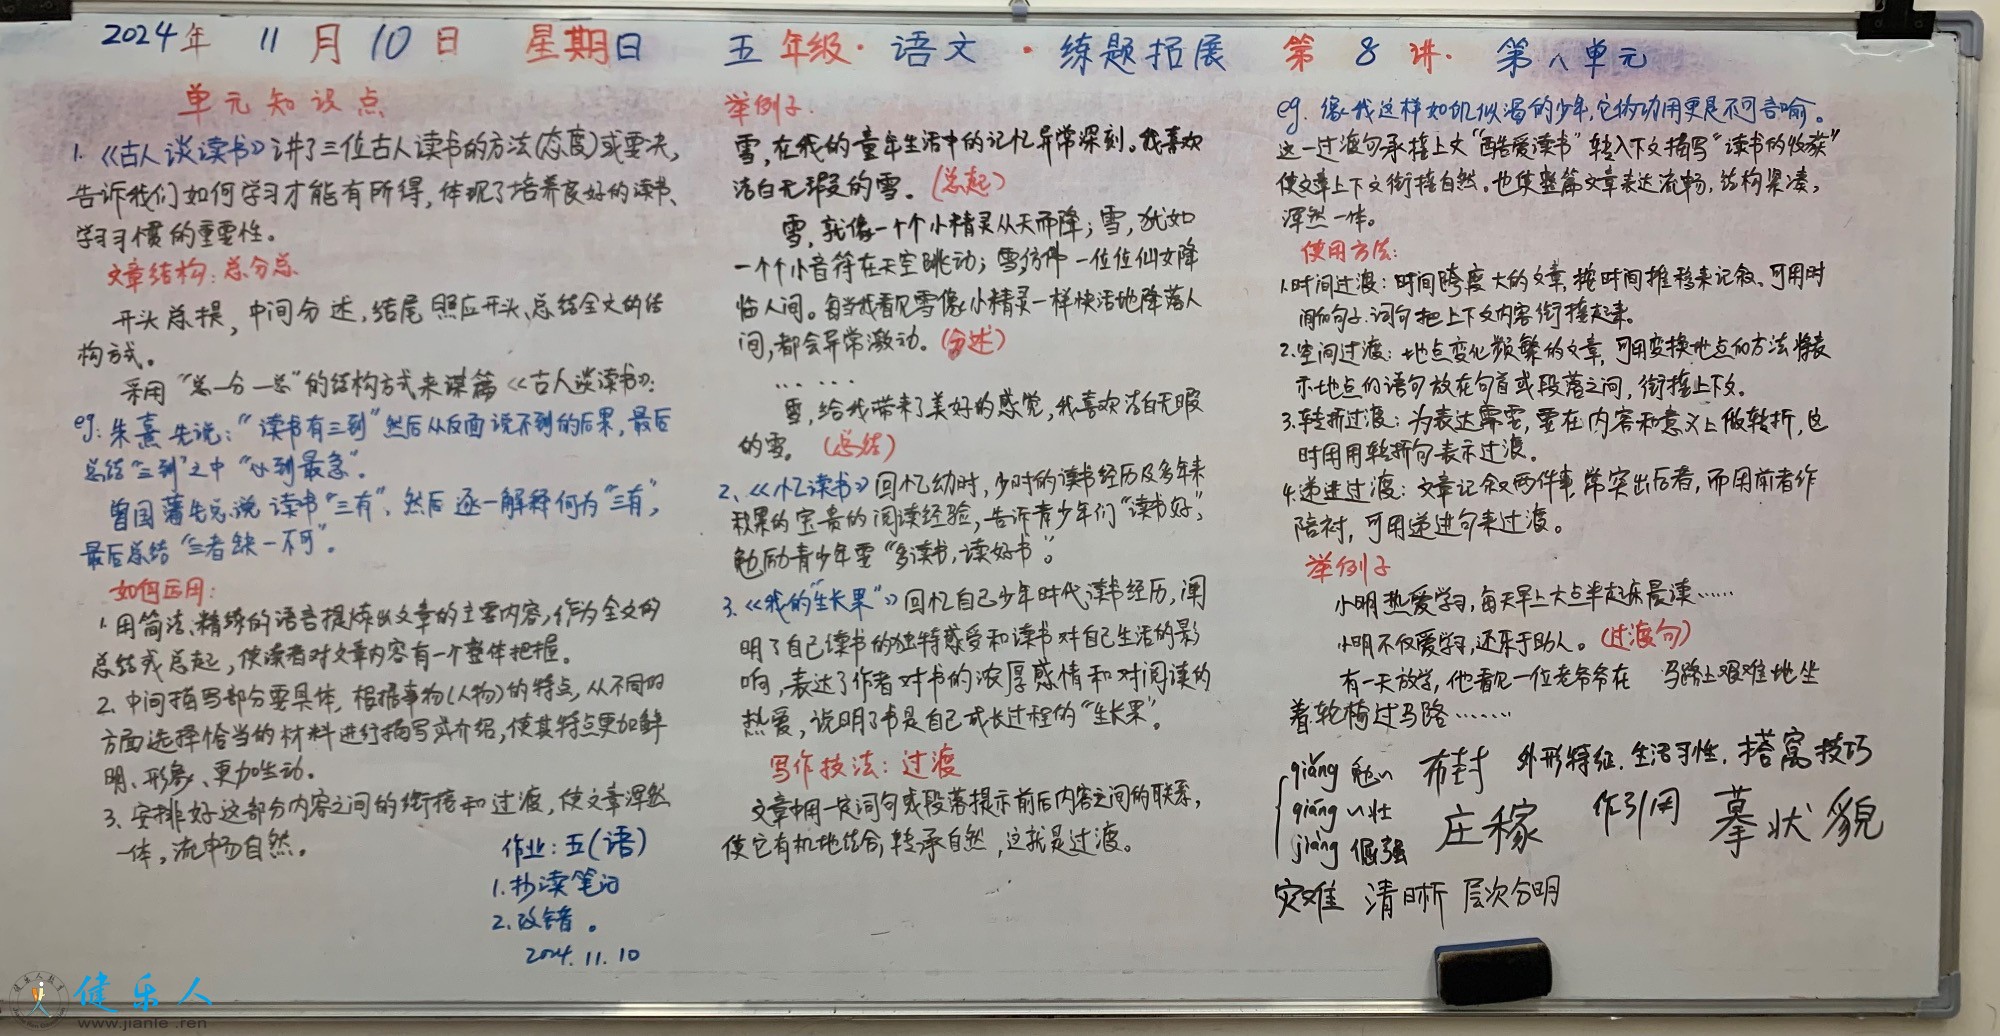 2024年 11月10日 星期日 五年级·语文·练题拓展 第8讲·第八单元
单元知识点
1.《古人谈读书》讲了三位古人读书的方法(态度)或要决,
告诉我们如何学习才能有所得,体现了培养良好的读书、
学习习惯的重要性。
文章结构:总分总
开头总提,中间分述,结尾照应开头、总结全文的结
构方式。
采用“总一分一总”的结构方式来谋篇《古人谈读书》:
eg:朱熹先说:“读书有三到”然后从反面说不到的后果,最后
总结“三到”之中“心到最急”。
曾国藩先总说读书“三有”,然后逐一解释何为“三有”,
最后总结“三者缺一不可”。
如何运用:
1.用简洁、精练的语言提炼出文章的主要内容,作为全文的
总结或总起,使读者对文章内容有一个整体把握。
2.中间描写部分要具体,根据事物(人物)的特点,从不同的
方面选择恰当的材料进行描写或介绍,使其特点更加鲜
明、形象、更加生动。
3.安排好这部分内容之间的衔接和过渡,使文章浑然
一体,流畅自然。
作业:五(语)
1.抄读笔记
2.改错。
2024.11.10
举例子:
雪,在我的童年生活中的记忆异常深刻。我喜欢
洁白无瑕的雪。(总起)
雪,就像一个个小精灵从天而降;雪,犹如
一个个小音符在天空跳动;雪,仿佛一位位仙女降
临人间。每当我看见雪像小精灵一样快活地降落人
间,都会异常激动。(分述)
......
雪,给我带来了美好的感觉,我喜欢洁白无暇
的雪。(总结)
2、《忆读书》回忆幼时,少时的读书经历及多年来
积累的宝贵的阅读经验,告诉青少年们“读书好”,
勉励青少年要“多读书,读好书”。
3.《我的“生长果”》回忆自己少年时代读书经历,阐
明了自己读书的独特感受和读书对自己生活的影
响,表达了作者对书的浓厚感情和对阅读的
热爱,说明了书是自己成长过程的“生长果”。
写作技法:过渡
文章中用一定词句或段落提示前后内容之间的联系,
使它有机地结合,转承自然,这就是过渡。
eg.像我这样如饥似渴的少年,它的功用更是不可言喻。
这一过渡句承接上文“酷爱读书”转入下文描写“读书的收获”
使文章上下文衔接自然。也使整篇文章表达流畅,结构紧凑,
浑然一体。
使用方法:
1.时间过渡:时间跨度大的文章,按时间推移来记叙、可用时
间的句子.词句把上下文内容衔接起来。
2.空间过渡:地点变化频繁的文章,可用变换地点的方法将表
示地点的语句放在句首或段落之间,衔接上下文。
3.转折过渡:为表达需要,要在内容和意义上做转折,这
时用用转折句表示过渡。
4.递进过渡:文章记叙两件事,常突出后者,而用前者作
陪衬,可用递进句来过渡。
举例子
小明热爱学习,每天早上六点半起床晨读……
小明不仅爱学习,还乐于助人。(过渡句)
有一天放学,他看见一位老爷爷在 马路上艰难地坐
着轮椅过马路……
qiǎng 勉~ 布封 外形特征.生活习性.搭窝技巧
qiáng ~壮 庄稼 作引用 摹状貌
jiàng 倔强
灾难 清晰 层次分明
健乐人
www.jianle.ren